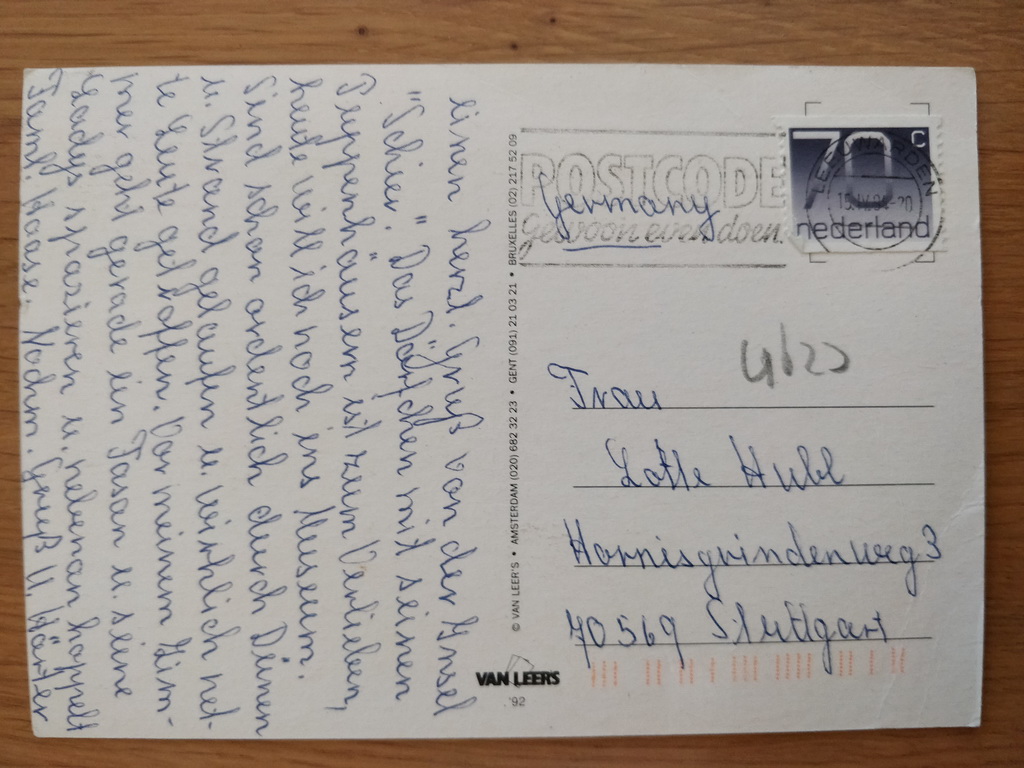 einen herzl. Gruß von der Insel
"Schier." Das Dörfchen mit seinen
Puppenhäusern ist zum Verlieben,
heute will ich noch ins Museum.
Sind schon ordentlich durch Dünen
u. Strand gelaufen u. wirklich net
te Leute getroffen. Vor meinem Zim-
mer geht gerade ein Fasan u. seine
Ladys spazieren u. nebenan hoppelt
Famil. Haase. Nochm. Gruß U.
© VAN LEER'S • AMSTERDAM (020) 682 32 23 • GENT (091) 21 03 21 • BRUXELLES (02) 217 52 09
VAN LEER'S
'92
POSTCODE
Gewoon even doen.
Germany
70 c
nederland
LEEUWARDEN
4/22
Frau
Lotte Hubl
Hornisgrindenweg 3
70569 Stuttgart